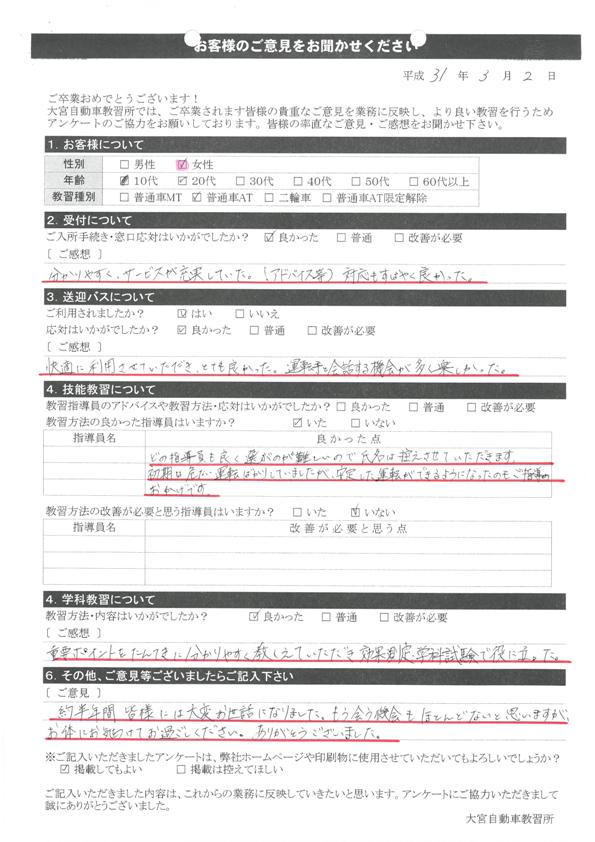 お客様のご意見をお聞かせください
平成 31 年 3 月 2 日
ご卒業おめでとうございます！
大宮自動車教習所では、ご卒業されます皆様の貴重なご意見を業務に反映し、より良い教習を行うため
アンケートのご協力をお願いしております。皆様の率直なご意見・ご感想をお聞かせ下さい。
1. お客様について
性別 □ 男性 ☑ 女性
年齢 ☑ 10代 ☑ 20代 □ 30代 □ 40代 □ 50代 □ 60代以上
教習種別 □ 普通車MT ☑ 普通車AT □ 二輪車 □ 普通車AT限定解除
2. 受付について
ご入所手続き・窓口応対はいかがでしたか？ ☑ 良かった □ 普通 □ 改善が必要
[ ご感想 ]
分かりやすく、サービスが充実していた。(アドバイス等) 対応もすばやく良かった。
3. 送迎バスについて
ご利用されましたか？ ☑ はい □ いいえ
応対はいかがでしたか？ ☑ 良かった □ 普通 □ 改善が必要
[ ご感想 ]
快適に利用させていただき、とても良かった。運転手と会話する機会が多く楽しかった。
4. 技能教習について
教習指導員のアドバイスや教習方法・応対はいかがでしたか？ □ 良かった □ 普通 □ 改善が必要
教習方法の良かった指導員はいますか？ ☑ いた □ いない
指導員名 良かった点
どの指導員も良く選がのが難しいので氏名は控えさせていただきます
初期は危ない運転ばかりしていましたが、安定した運転ができるようになったのもご指導の
おかげです。
教習方法の改善が必要と思う指導員はいますか？ □ いた ☑ いない
指導員名 改善が必要と思う点
4. 学科教習について
教習方法・内容はいかがでしたか？ ☑ 良かった □ 普通 □ 改善が必要
[ ご感想 ]
重要ポイントをたんてきに分かりやすく教しえていただき効果測定、学科試験で役に立った。
6. その他、ご意見等ございましたらご記入下さい
[ ご意見 ]
約半年間 皆様には大変お世話になりました。もう会う機会もほとんどないと思いますが、
お体にお気をつけてお過ごしください。ありがとうございました。
※ご記入いただきましたアンケートは、弊社ホームページや印刷物に使用させていただいてもよろしいでしょうか？
☑ 掲載してもよい □ 掲載は控えてほしい
ご記入いただきました内容は、これからの業務に反映していきたいと思います。アンケートにご協力いただきまして
誠にありがとうございました。
大宮自動車教習所